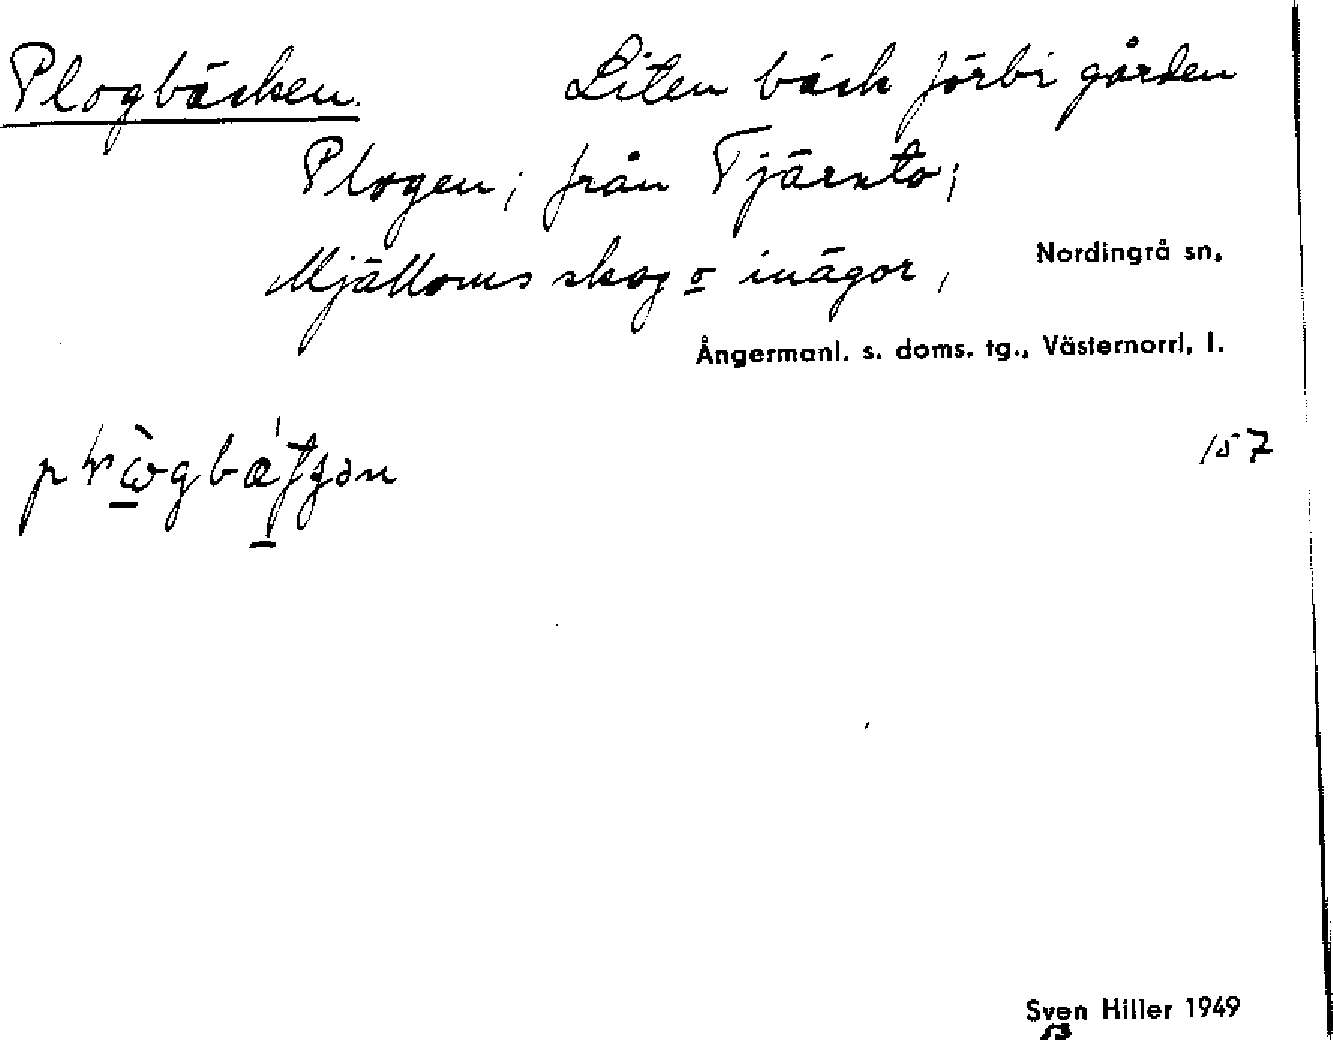 Plogbäcken. Liten bäck förbi gården
Plogen; från Tjärnto;
Mjälloms skog o inägor,
Nordingrå sn,
Ångermanl. s. doms. tg., Västernorrl, l.
157
Sven Hiller 1949